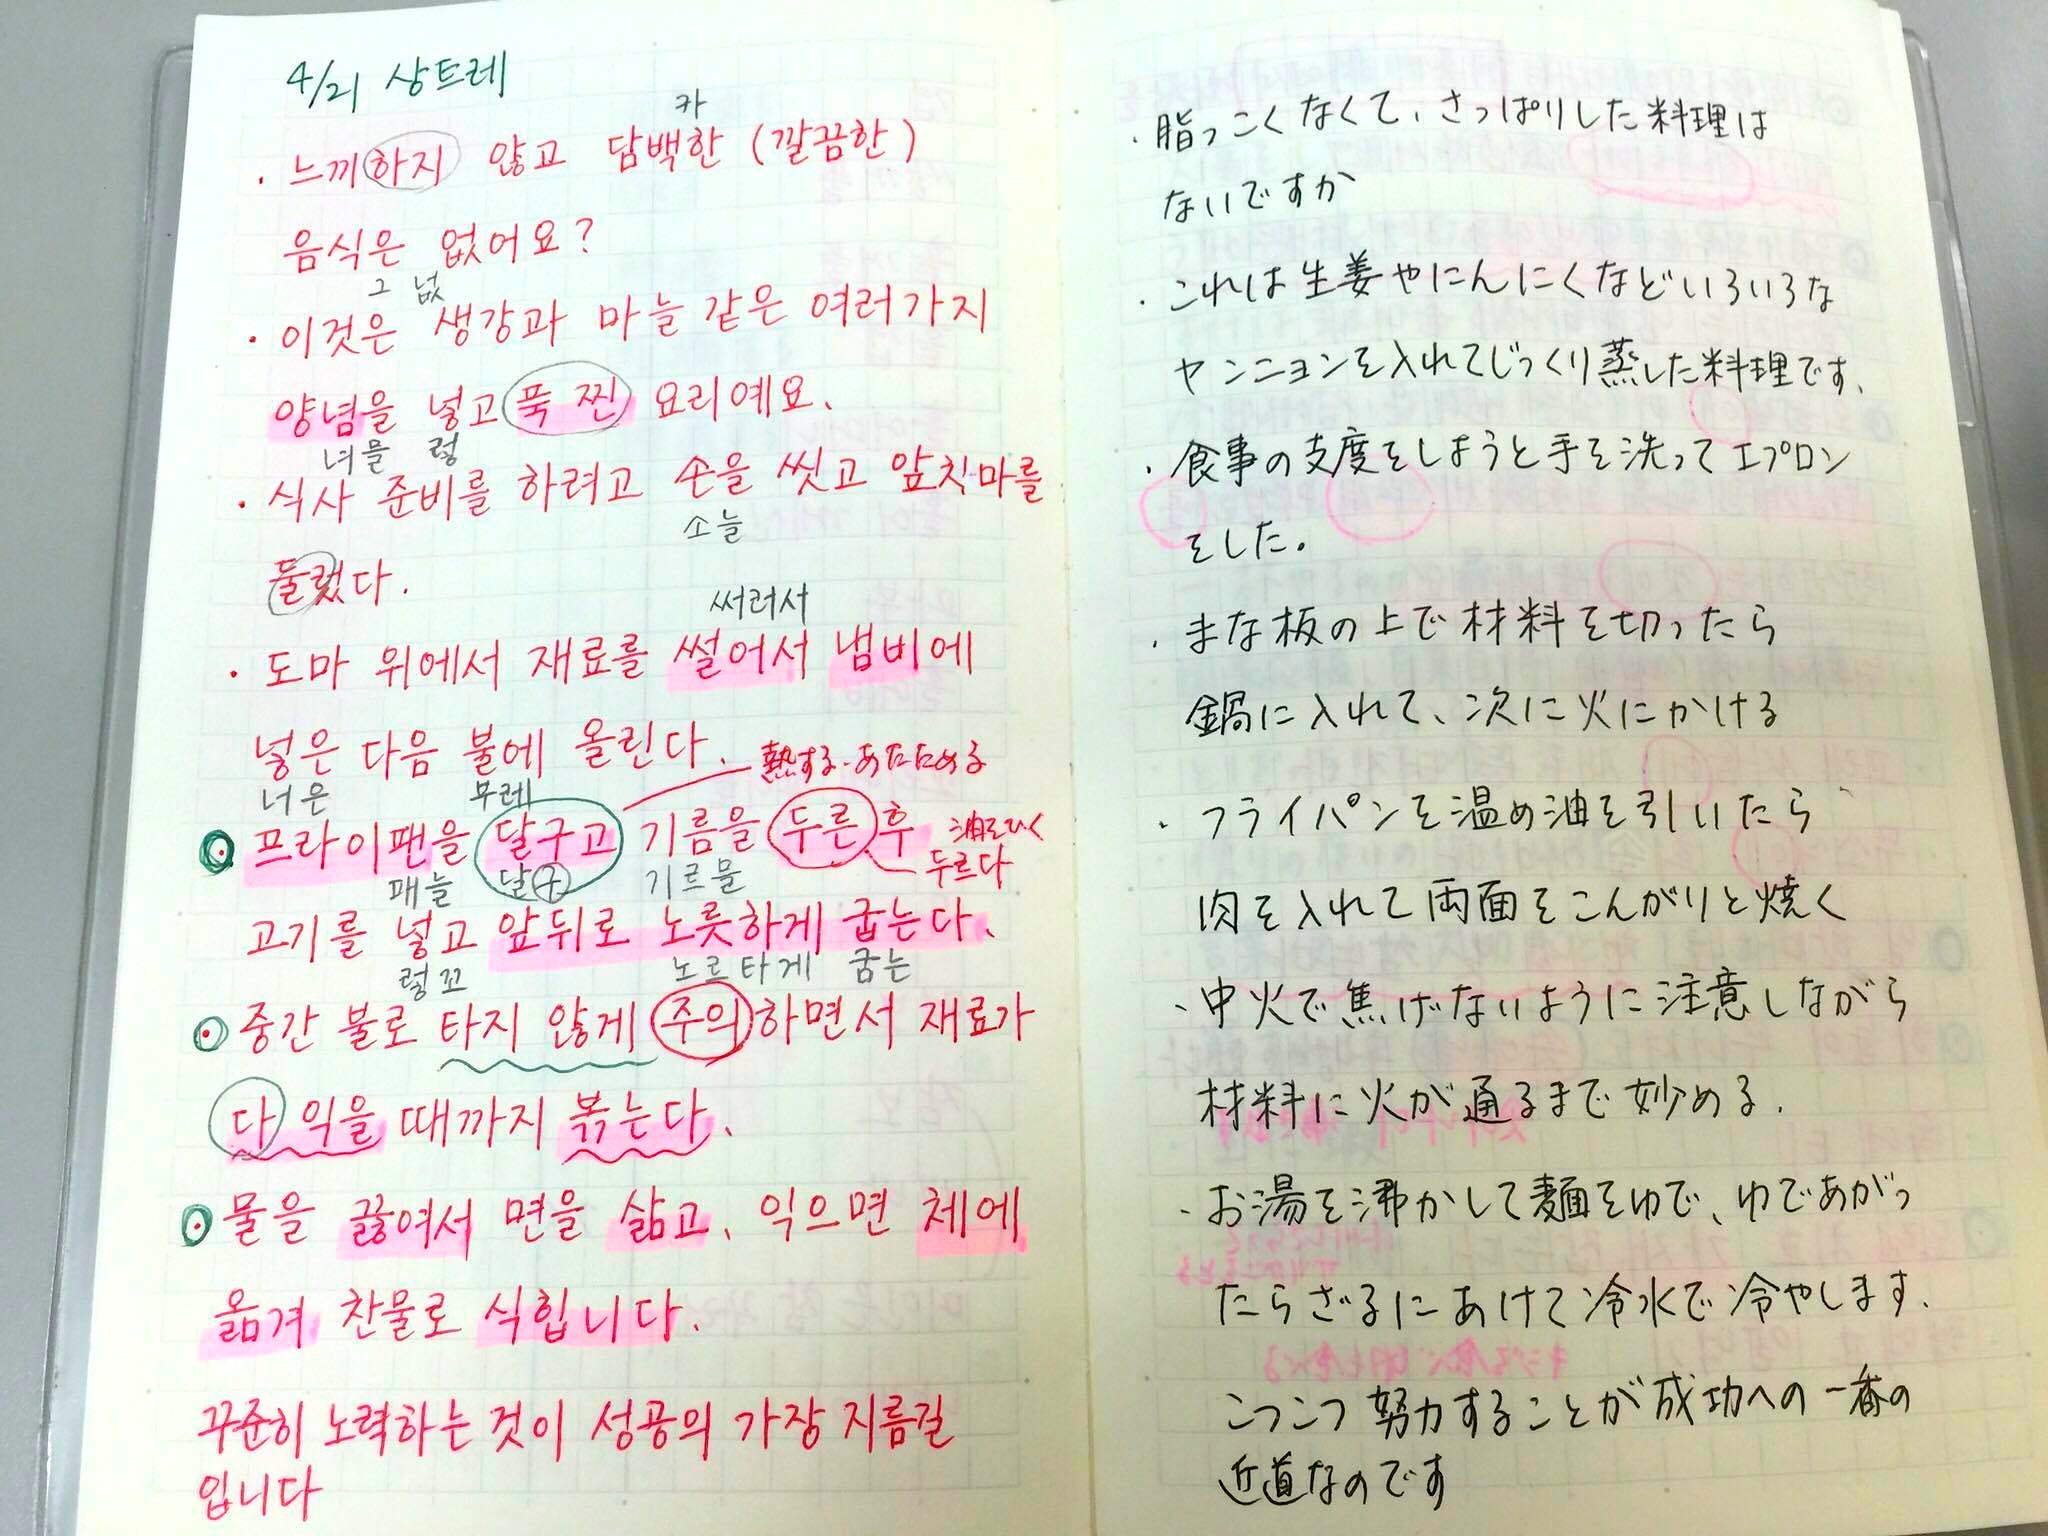 4/21 상트레
카
· 느끼하지 않고 담백한 (깔끔한)
음식은 없어요?
그 넚
· 이것은 생강과 마늘 같은 여러가지
양념을 넣고 푹 찐 요리예요.
녀믈 렇
· 식사 준비를 하려고 손을 씻고 앞치마를
소늘
둘렀다.
써러서
· 도마 위에서 재료를 썰어서 냄비에
넣은 다음 불에 올린다.
熱する・あたためる
너은 부레
프라이팬을 달구고 기름을 두른 후
油をひく
두르다
패늘 달구 기르믈
고기를 넣고 앞뒤로 노릇하게 굽는다.
렇꼬 노르타게 굼는
중간 불로 타지 않게 주의하면서 재료가
다 익을 때까지 볶는다.
물을 끓여서 면을 삶고, 익으면 체에
옮겨 찬물로 식힙니다.
꾸준히 노력하는 것이 성공의 가장 지름길
입니다
· 脂っこくなくて、さっぱりした料理は
ないですか
· これは生姜やにんにくなどいろいろな
ヤンニョンを入れてじっくり蒸した料理です、
· 食事の支度をしようと手を洗ってエプロン
をした。
· まな板の上で材料を切ったら
鍋に入れて、次に火にかける
· フライパンを温め油を引いたら
肉を入れて両面をこんがりと焼く
· 中火で焦げないように注意しながら
材料に火が通るまで炒める.
· お湯を沸かして麺をゆで、ゆであがっ
たらざるにあけて冷水で冷やします.
こつこつ努力することが成功への一番の
近道なのです